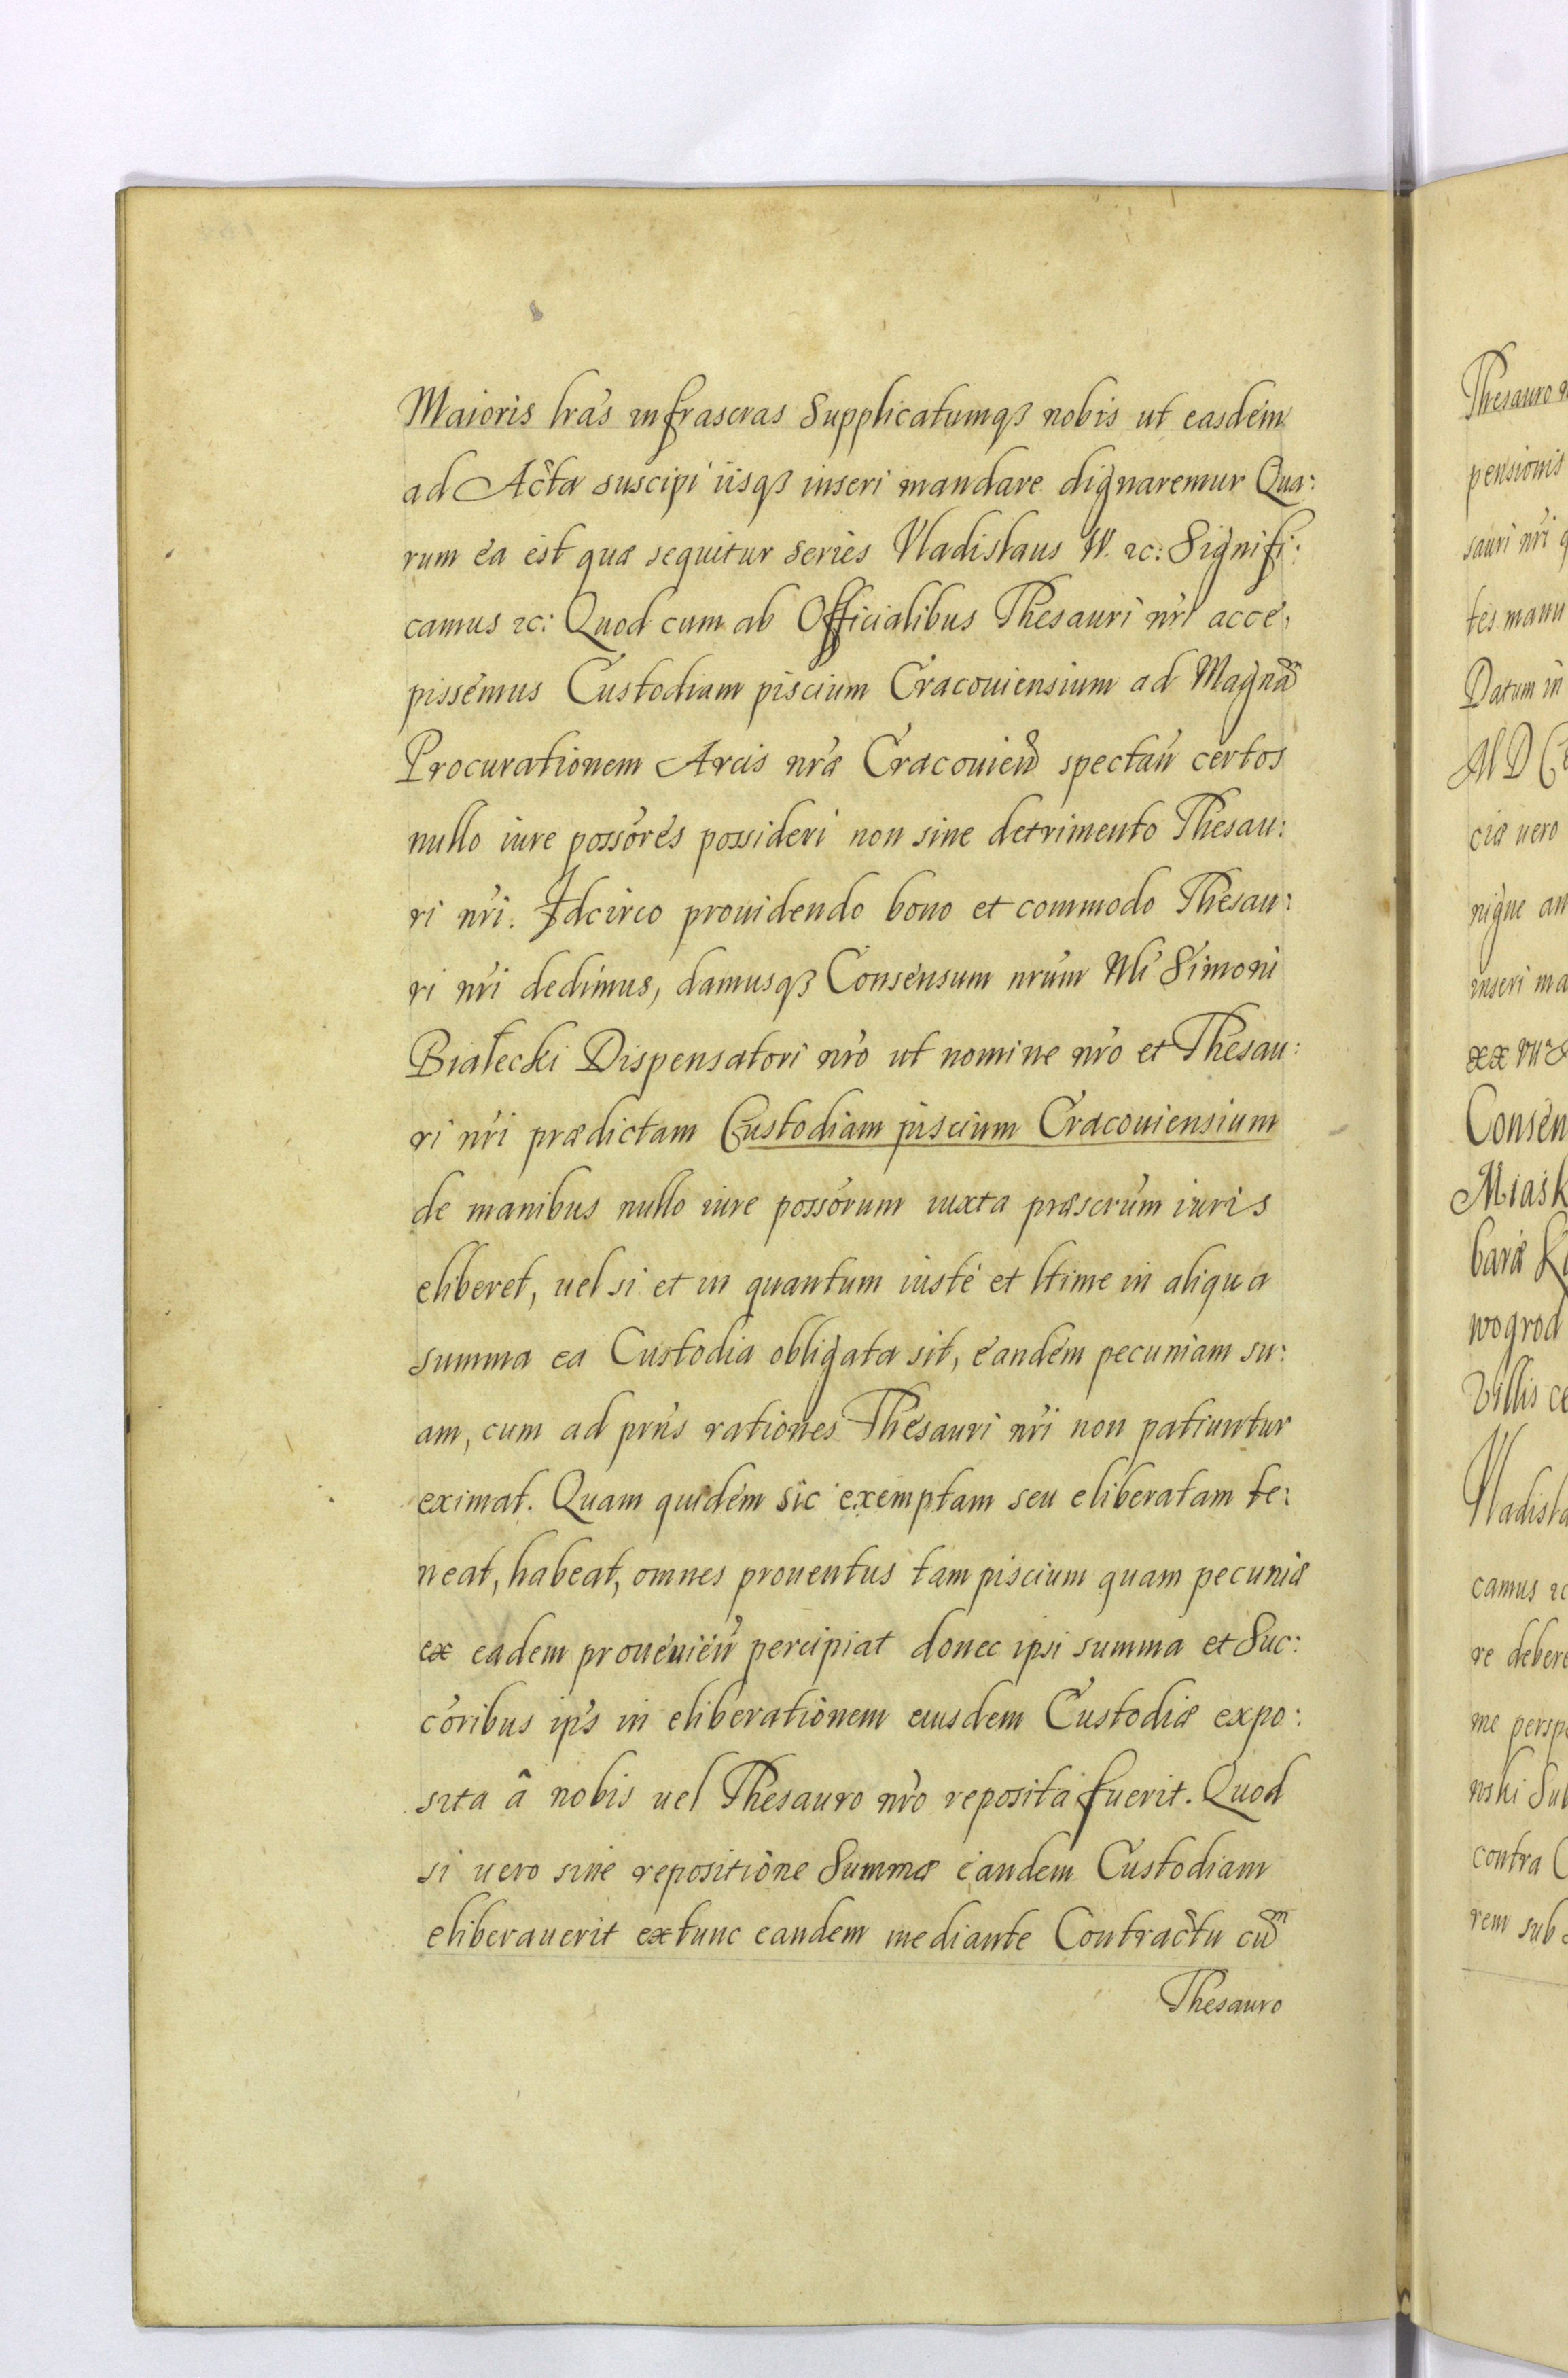 Maioris lrás infrascras Supplicatumqз nobis ut easdem
ad Acta suscipi iisqз inseri mandare dignaremur Qua:
rum ea est quæ sequitur series Vladislaus IV. &c: Signifi:
camus &c: Quod cum ab Officialibus Thesauri nri acce:
pissemus Custodiam piscium Cracouiensium ad Magnam
Procurationem Arcis nræ Cracouien spectan certos
nullo iure possores possideri non sine detrimento Thesau:
ri nri. Idcirco prouidendo bono et commodo Thesau:
ri nri dedimus, damusqз Consensum nrum Nli Simoni
Białecki Dispensatori nro ut nomine nro et Thesau:
ri nri prædictam Custodiam piscium Cracouiensium
de manibus nullo iure possorum iuxta præscrum iuris
eliberet, uel si et in quantum iuste et ltime in aliqua
summa ea Custodia obligata sit, eandem pecuniam su:
am, cum ad prns rationes Thesauri nri non patiuntur
eximat. Quam quidem sic exemptam seu eliberatam te:
neat, habeat, omnes prouentus tam piscium quam pecuniæ
ex eadem prouenien percipiat donec ipsi summa et Suc:
coribus ips in eliberationem eiusdem Custodiæ expo:
sita â nobis uel Thesauro nro reposita fuerit. Quod
si uero sine repositione Summæ eandem Custodiam
eliberauerit extunc eandem mediante Contractu cum
Thesauro
Thesauro
pensionis
sauri nri
tes manu
Datum in
MD
ciæ uero
nique
inseri ma
Consen
Miask
bariæ
wogrod
Villis
Vladisla
camus &c
re debere
me persp
nski Sub
contra
rem sub